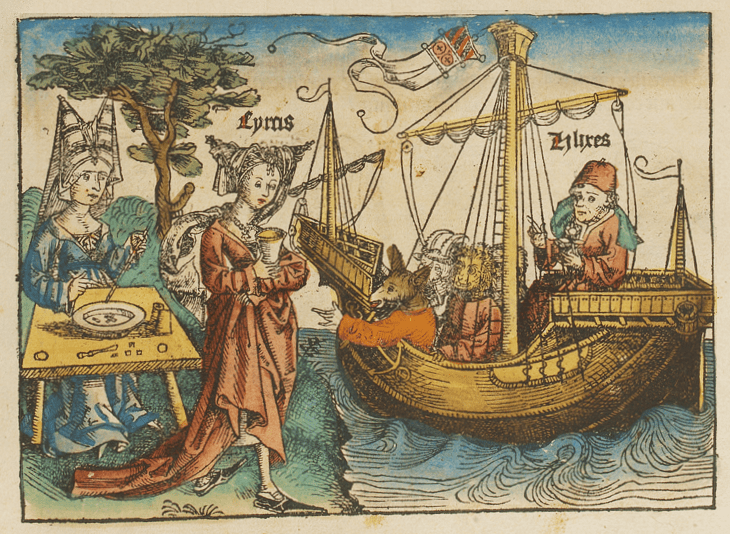 Cyrcis
Ulixes